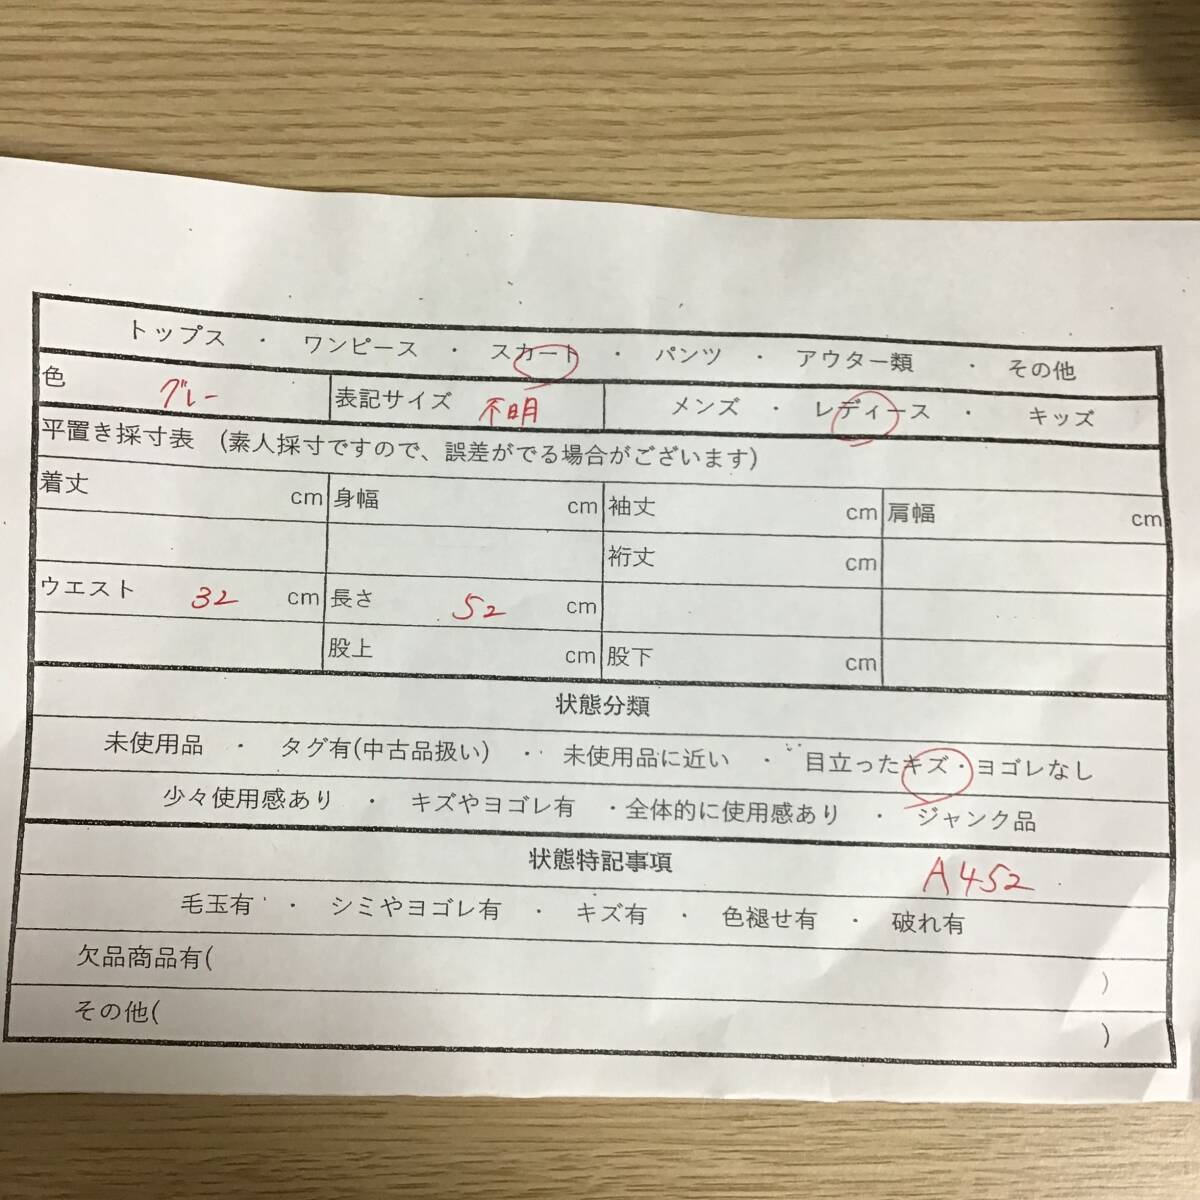 トップス ・ ワンピース ・ スカート ・ パンツ ・ アウター類 ・ その他
色 グレー 表記サイズ 不明 メンズ ・ レディース ・ キッズ
平置き採寸表 (素人採寸ですので、誤差がでる場合がございます)
着丈 cm 身幅 cm 袖丈 cm 肩幅 cm
裄丈 cm
ウエスト 32 cm 長さ 52 cm
股上 cm 股下 cm
状態分類
未使用品 ・ タグ有(中古品扱い) ・ 未使用品に近い ・ 目立ったキズ・ヨゴレなし
少々使用感あり ・ キズやヨゴレ有 ・全体的に使用感あり ・ ジャンク品
状態特記事項 A452
毛玉有 ・ シミやヨゴレ有 ・ キズ有 ・ 色褪せ有 ・ 破れ有
欠品商品有( )
その他( )